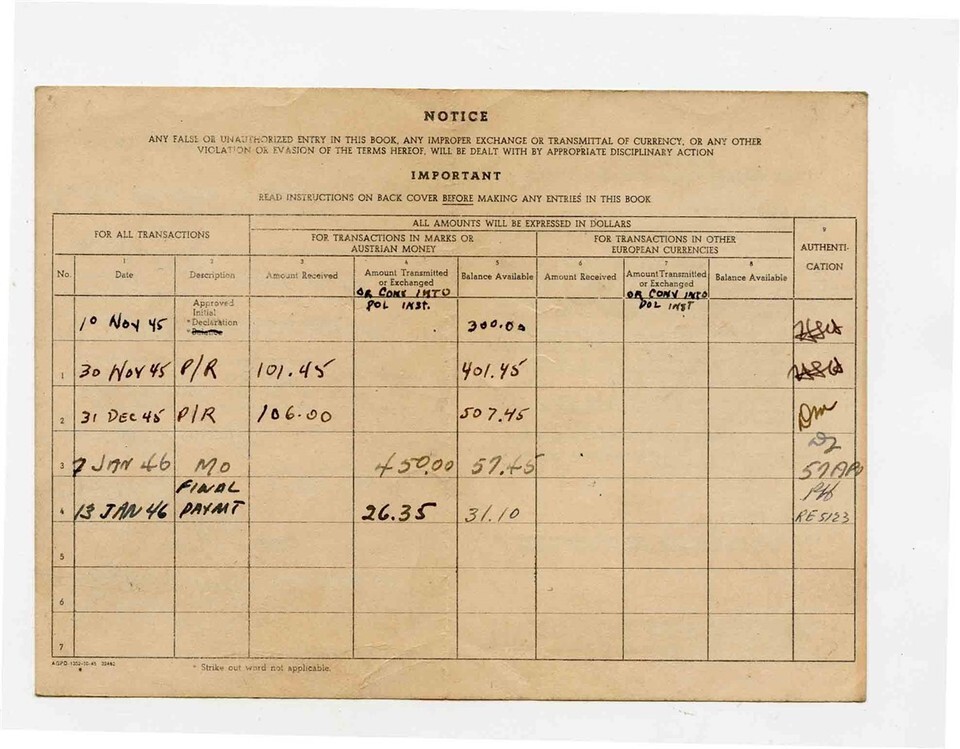 NOTICE
ANY FALSE OR UNAUTHORIZED ENTRY IN THIS BOOK, ANY IMPROPER EXCHANGE OR TRANSMITTAL OF CURRENCY, OR ANY OTHER
VIOLATION OR EVASION OF THE TERMS HEREOF, WILL BE DEALT WITH BY APPROPRIATE DISCIPLINARY ACTION
IMPORTANT
READ INSTRUCTIONS ON BACK COVER BEFORE MAKING ANY ENTRIES IN THIS BOOK
ALL AMOUNTS WILL BE EXPRESSED IN DOLLARS
FOR ALL TRANSACTIONS
FOR TRANSACTIONS IN MARKS OR
AUSTRIAN MONEY
FOR TRANSACTIONS IN OTHER
EUROPEAN CURRENCIES
9
AUTHENTI-
CATION
1 2 3 4 5 6 7 8
No. Date Description Amount Received Amount Transmitted
or Exchanged
OR CONV INTO
POL INST.
Balance Available Amount Received Amount Transmitted
or Exchanged
OR CONV INTO
POL INST
Balance Available
10 Nov 45 Approved
Initial
*Declaration
*Balance
300.00
1 30 Nov 45 P/R 101.45 401.45
2 31 DEC 45 P/R 106.00 507.45 Dm
3 7 JAN 46 MO 450.00 57.45 57 APO
4 13 JAN 46 FINAL
PAYMT 26.35 31.10 RE 5123
5
6
7
* Strike out word not applicable.